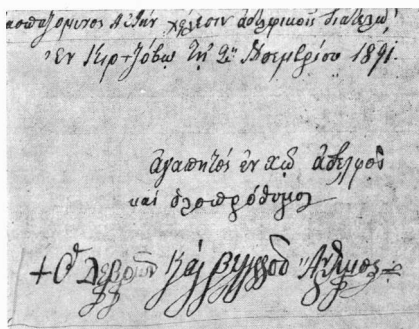 ἀσπαζόμενος Αὐτὴν χείλεσιν ἀδελφικοῖς διατελῶ
Ἐν Κιρτζόβῳ τῇ 2ᾳ Νοεμβρίου 1891.
ἀγαπητὸς ἐν χῷ ἀδελφὸς
καὶ ὁλοπρόθυμος
+ Ὁ Δεβρῶν καὶ Βελισσοῦ Ἄνθιμος